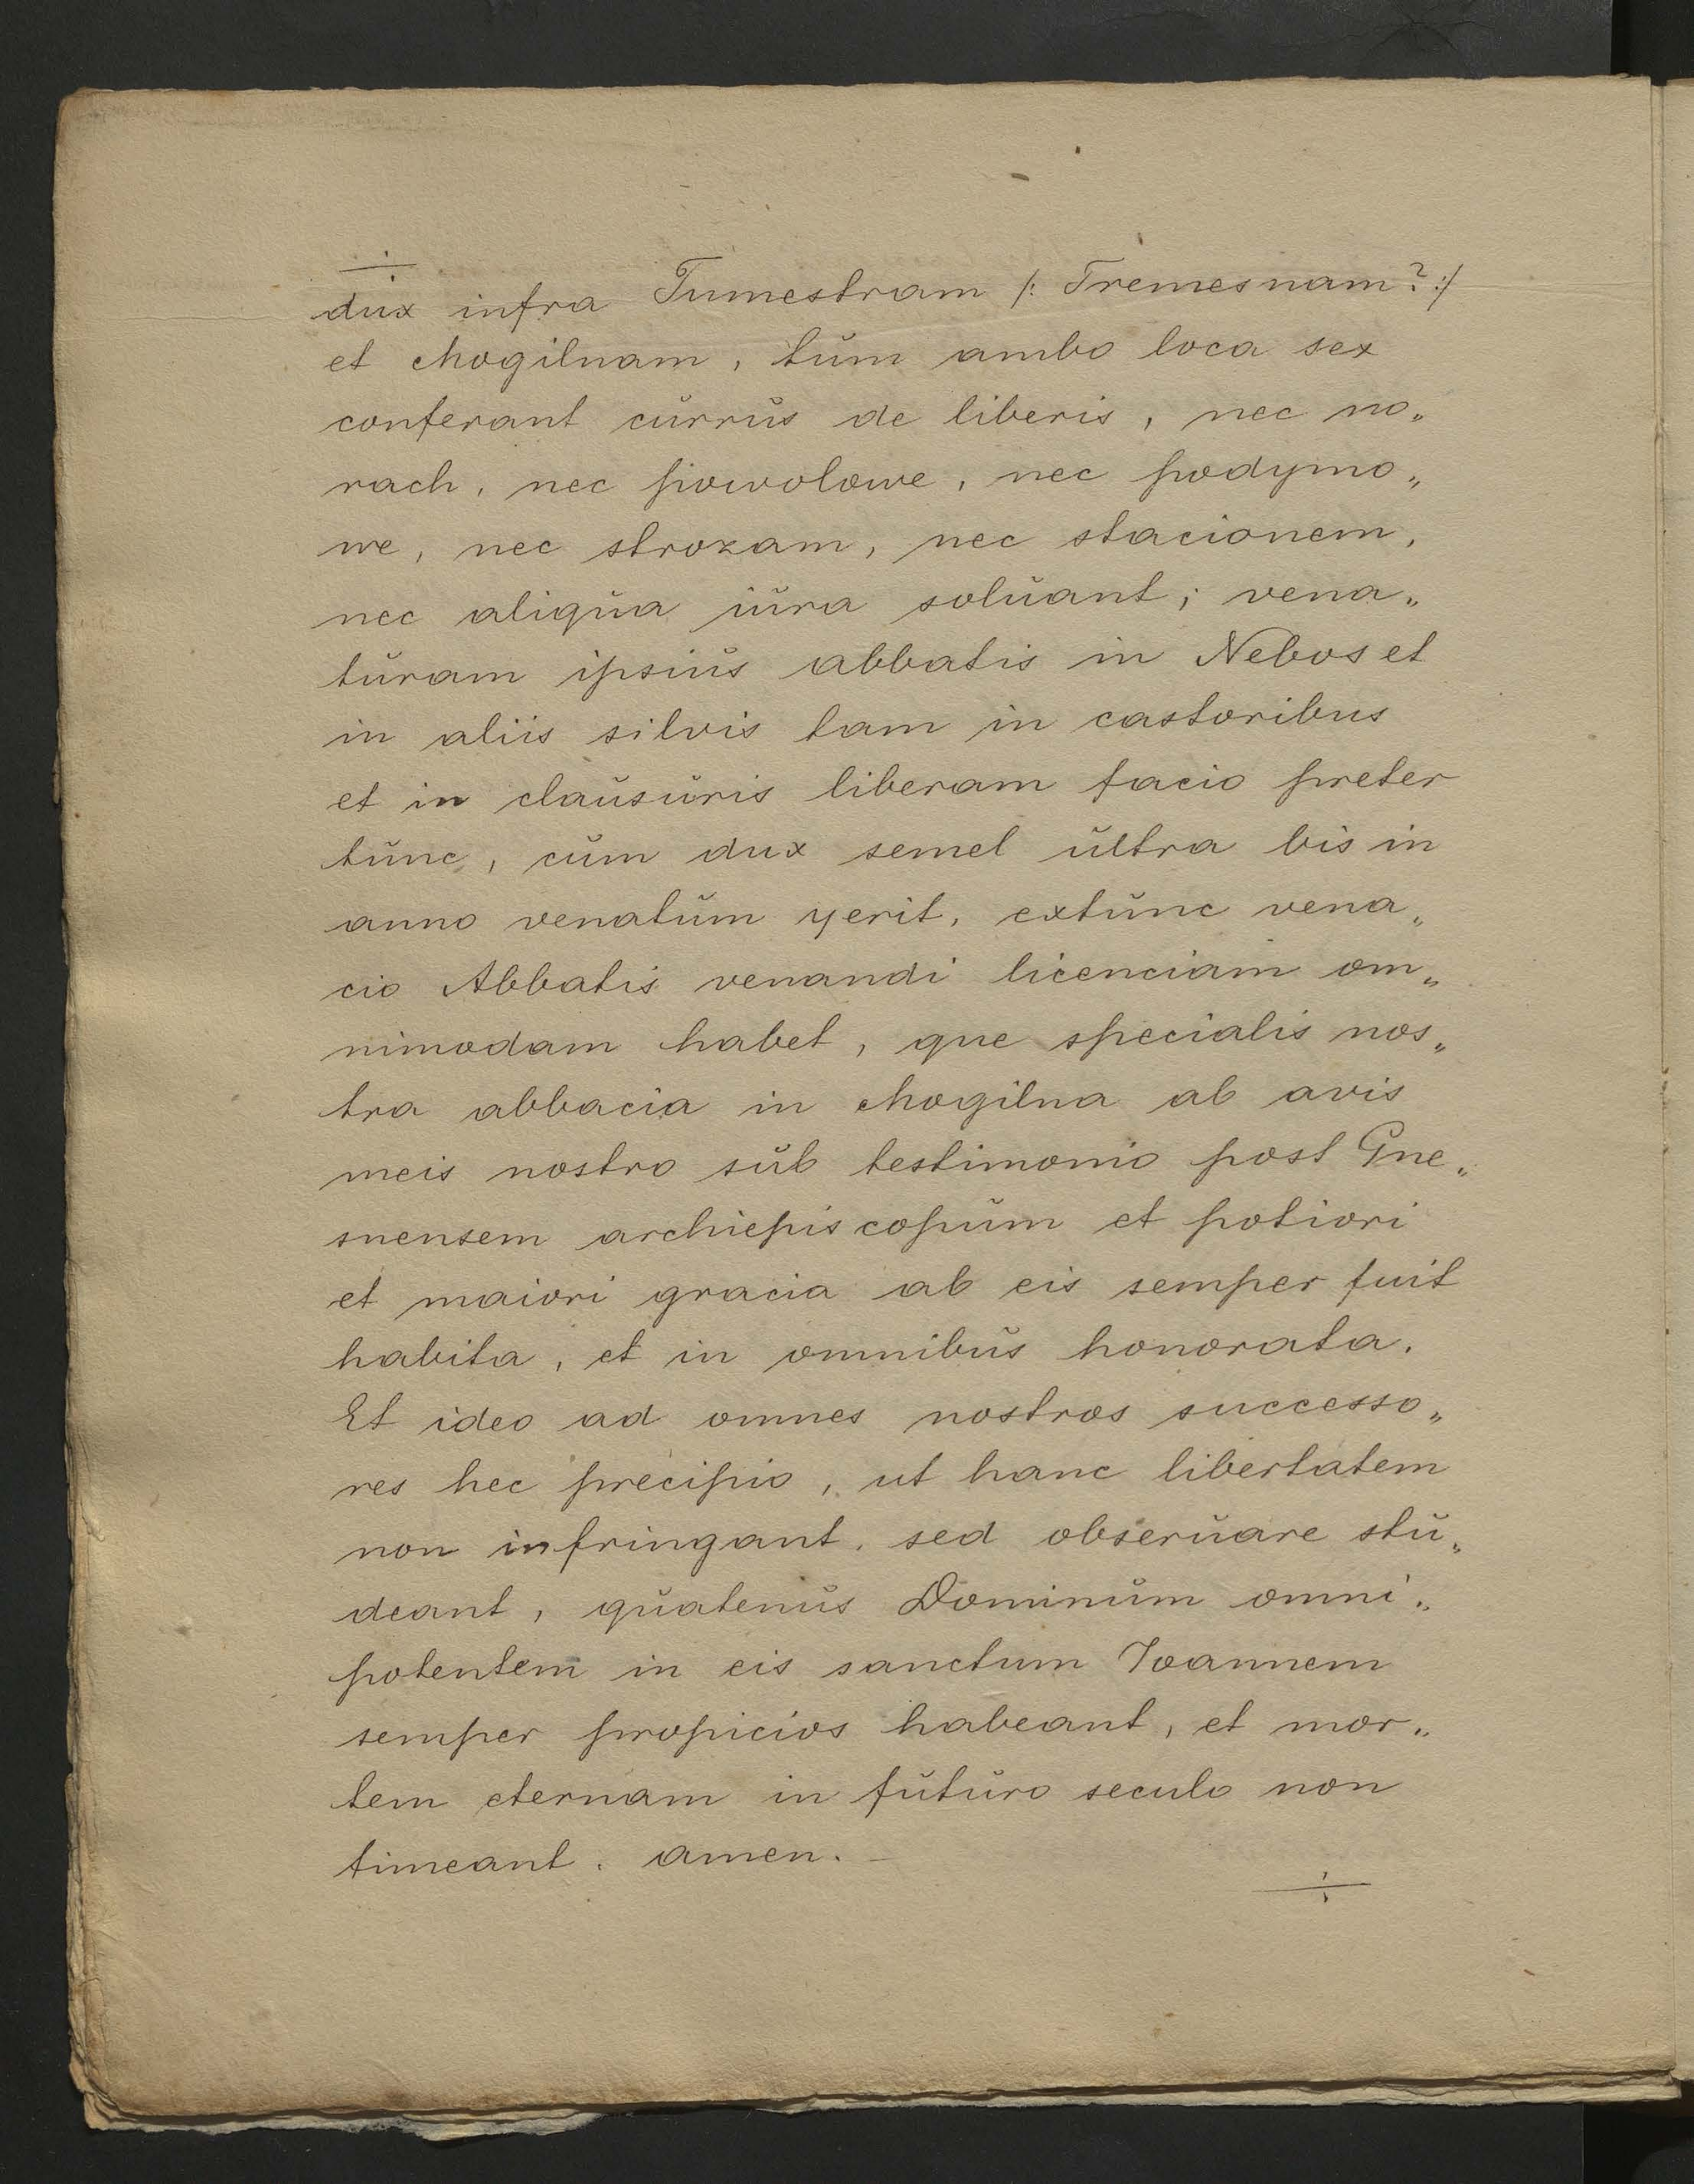 ÷
dux infra Tumestram /: Tremesnam? :/
et Mogilnam, tum ambo loca sex
conferant currus de liberis, nec no„
rach, nec powolowe, nec podymo„
we, nec strozam, nec stacionem,
nec aliqua iura soluant; vena„
turam ipsius abbatis in Nebos et
in aliis silvis tam in castoribus
et in clausuris liberam facio preter
tunc, cum dux semel ultra bis in
anno venatum yerit, extunc vena„
cio Abbatis venandi licenciam om„
nimodam habet, que specialis nos„
tra abbacia in Mogilna ab avis
meis nostro sub testimonio post Gne„
snensem archiepiscopum et potiori
et maiori gracia ab eis semper fuit
habita, et in omnibus honorata.
Et ideo ad omnes nostros successo„
res hec precipio, ut hanc libertatem
non infringant, sed obseruare stu„
deant, quatenus Dominum omni„
potentem in eis sanctum Ioannem
semper propicios habeant, et mor„
tem eternam in futuro seculo non
timeant. amen. –
÷